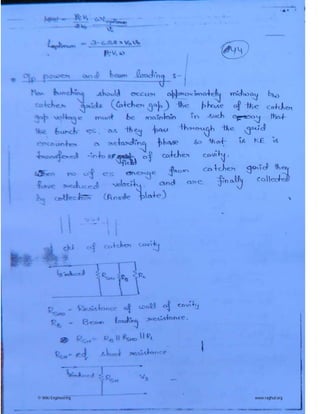 L optimum = 3.682 V₀ V₀
β₁ V₁ ω
44
O/p power and beam loading :-
Max bunching should occur approximately midway b/w
catcher grids (catcher gap) the phase of the catcher
gap voltage must be maintain in such a way that
the bunch es, as they pass through the grid
encounter a retarding phase so that its KE is
transferred into field of catcher cavity.
When no of es emerge from catcher grid they
have reduced velocity and are finally collected
by collector (Anode plate)
ckt of catcher cavity
I₂ induced
Rsho
RB
RL
Rsho - Resistance of wall of cavity
RB - Beam loading resistance.
RSH - RB || Rsho || RL
RSH - eq. shunt resistance
I₂ induced
RSH
V₂
© Wiki Engineering
www.raghul.org